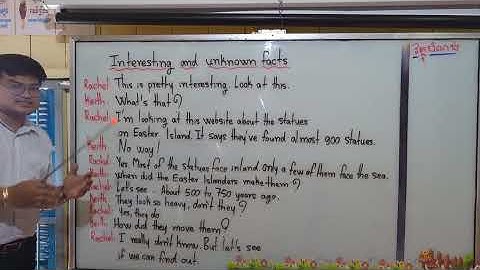 Interesting and unknown facts
Rachel This is pretty interesting. Look at this.
Keith What's that?
Rachel I'm looking at this website about the statues
on Easter Island. It says they've found almost 900 statues.
Keith No way!
Rachel Yes. Most of the statues face inland. Only a few of them face the sea.
Keith When did the Easter Islanders make them?
Rachel Let's see.. About 500 to 750 years ago.
Keith They look so heavy, don't they?
Rachel Yes, they do.
Keith How did they move them?
Rachel I really don't know. But let's see
if we can find out.